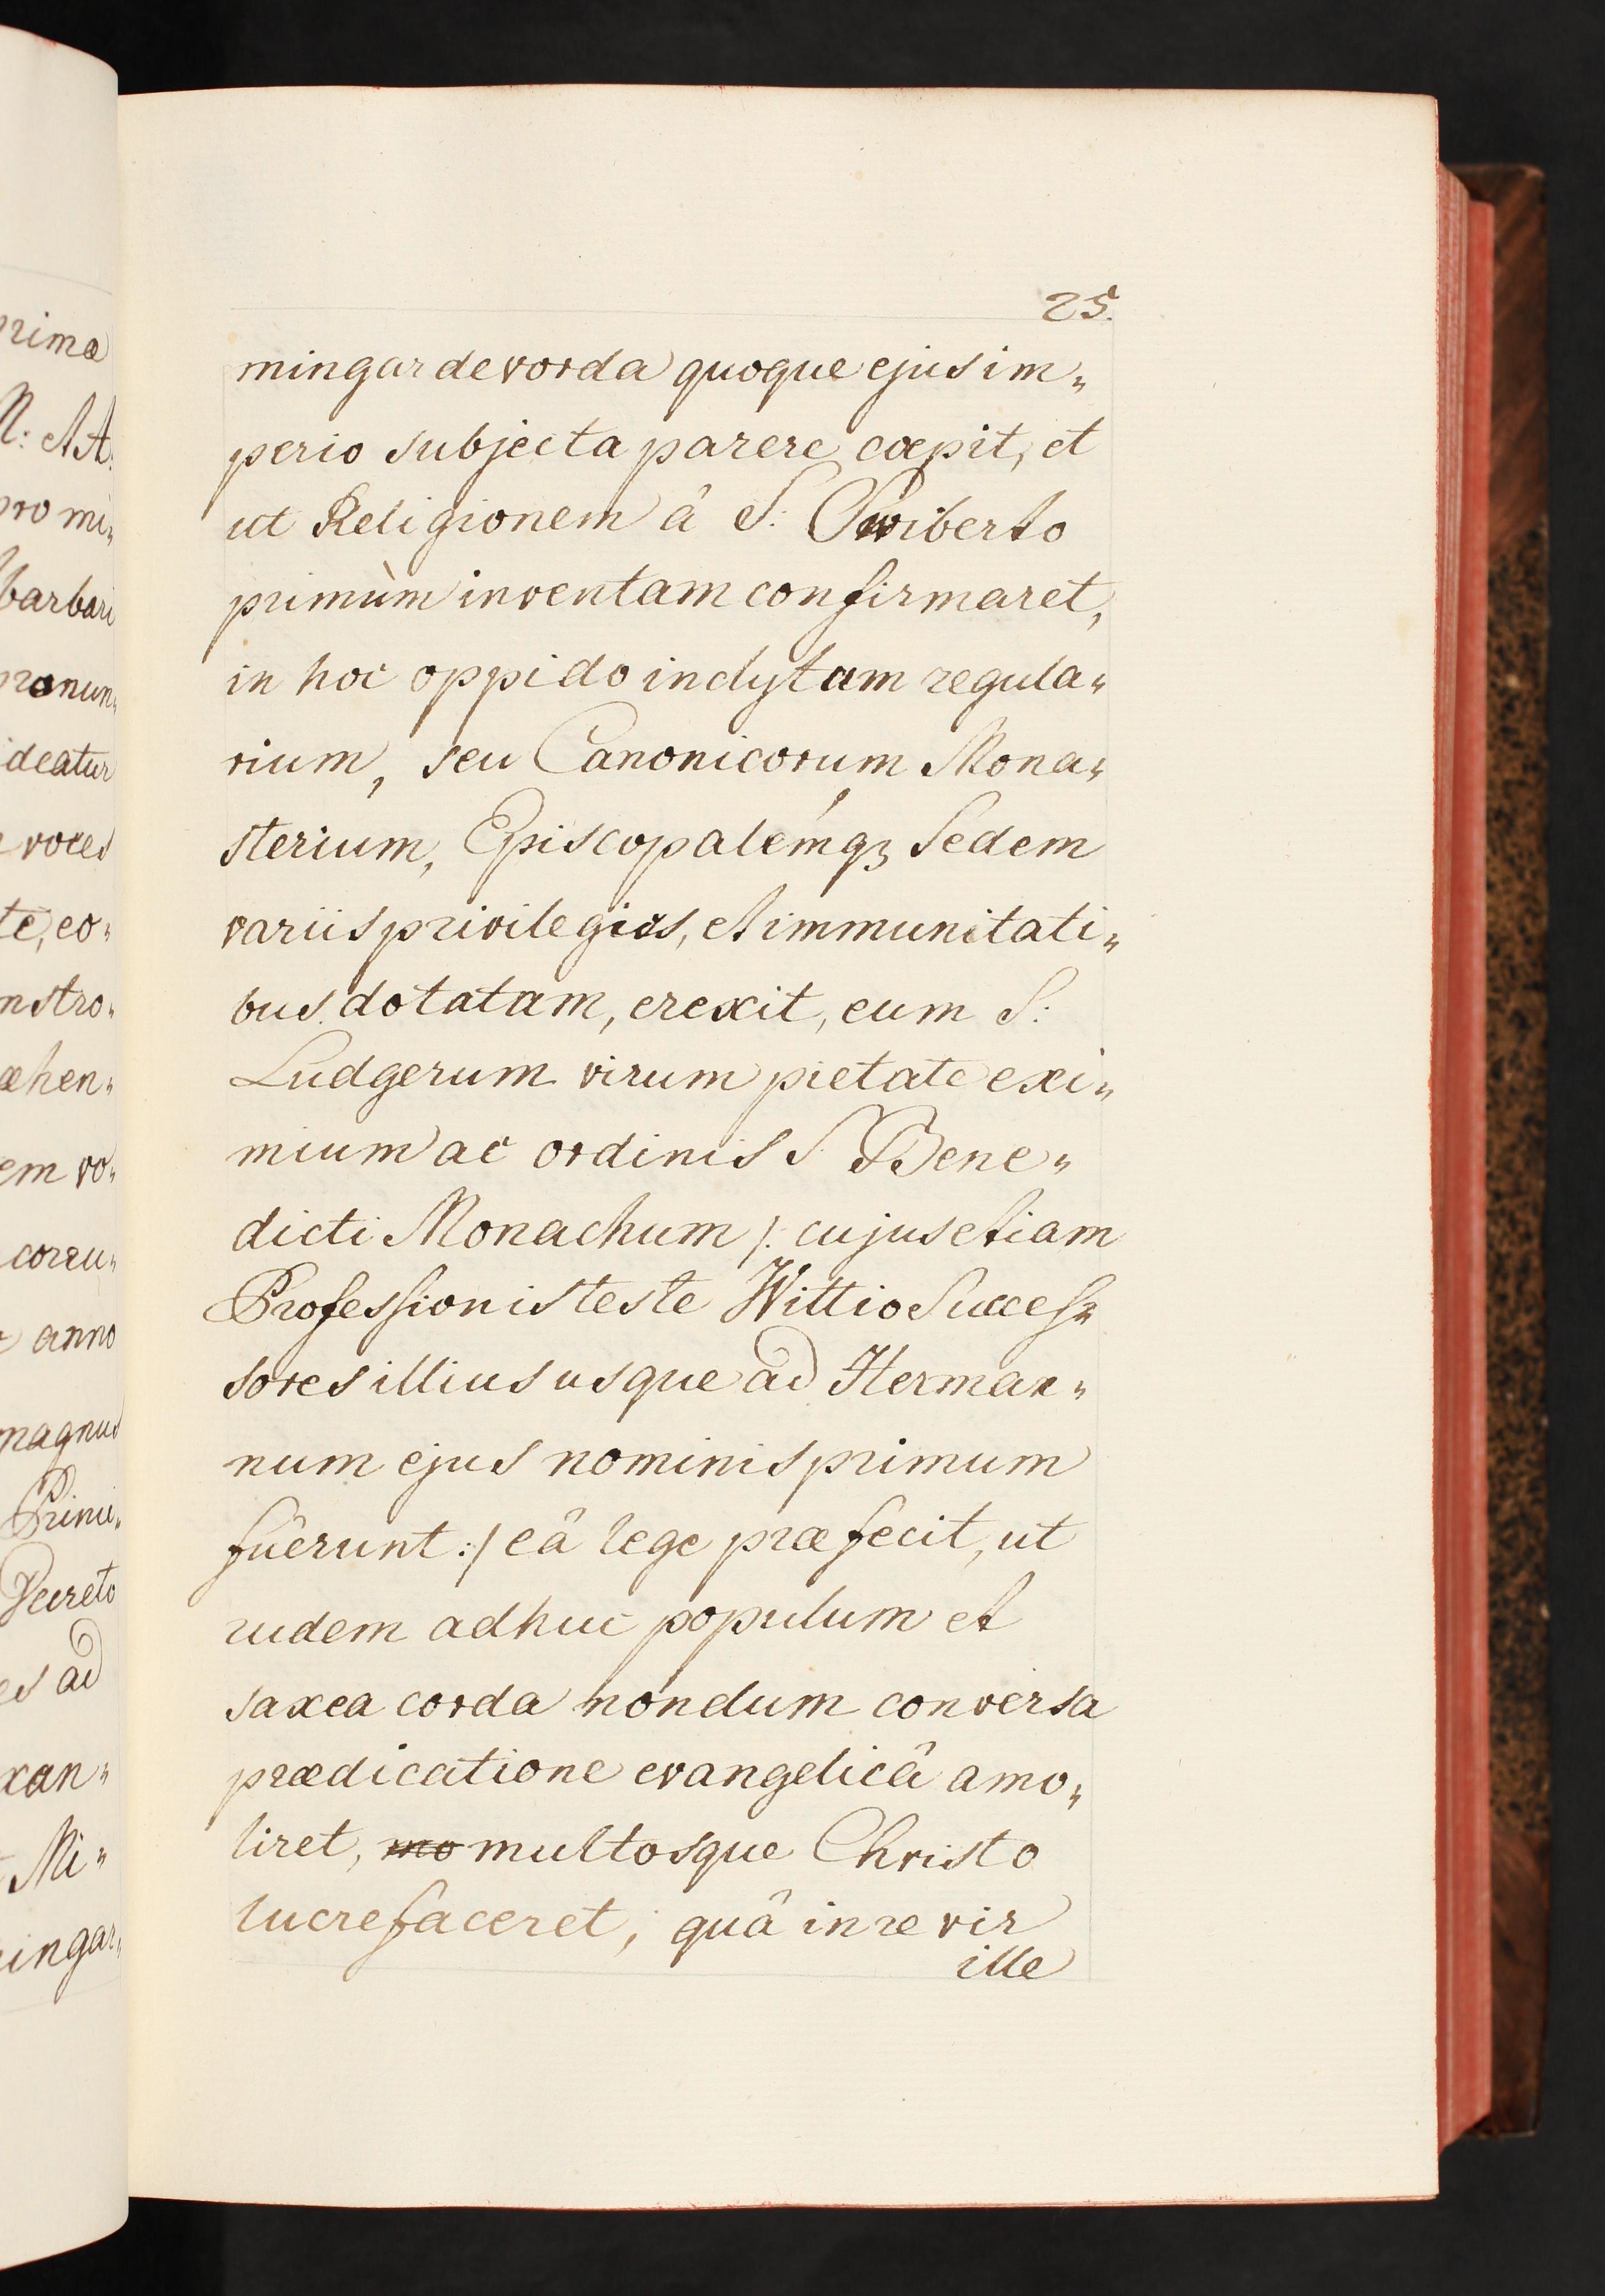 25.
mingardevorda quoque ejus im„
perio subjecta parere coepit, et
ut Religionem â S: Swiberto
primùm inventam confirmaret,
in hoc oppido inclytam regula„
rium, seu Canonicorum Mona„
sterium, Episcopalémqz Sedem
variis privilegiis, et immunitati„
bus dotatam, erexit, eum S:
Ludgerum virum pietate exi„
mium ac ordinis S Bene„
dicti Monachum /: cujus etiam
Professionis teste Wittio Succes„
sores illius usque ad Herman„
num ejus nominis primum
fuêrunt :/ eâ lege præfecit, ut
rudem adhuc populum et
saxea corda nondum conversa
prædicatione evangelicâ amo„
liret, mo multosque Christo
lucrefaceret, quâ in re vir
ille
rima
N: AA:
pro mi„
barbari
pronun„
ideatur
voces
te, eo„
nstro„
æhen„
em vo„
corru„
anno
magnus
Princi„
Decreto
es ad
xan„
Mi„
ingar„